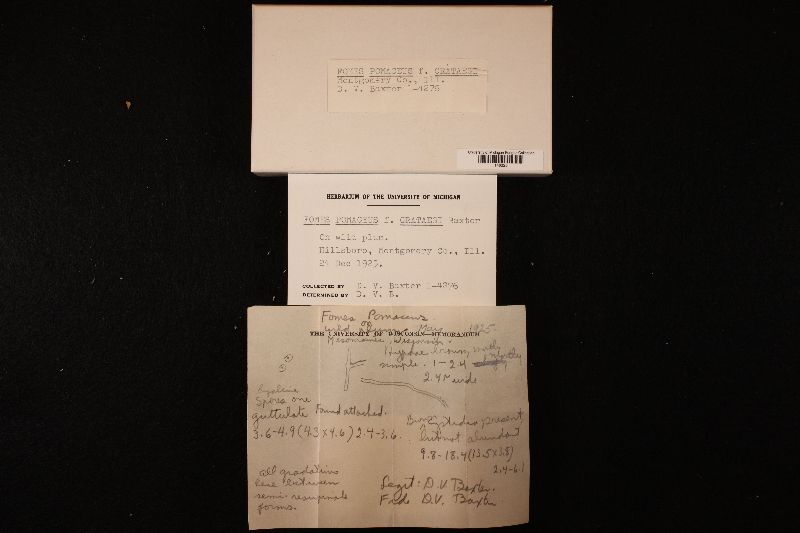 FOMES POMACEUS f. CRATAEGI
Montgomery Co., Ill.
D. V. Baxter
University of Michigan Fungus Collection
HERBARIUM OF THE UNIVERSITY OF MICHIGAN
FOMES POMACEUS f. CRATAEGI Baxter
On wild plum.
Hillsboro, Montgomery Co., Ill.
24 Dec 1925.
COLLECTED BY D. V. Baxter I-4276
DETERMINED BY D. V. B.
Fomes Pomaceus
on
wild plum May 1925.
THE UNIVERSITY OF WISCONSIN MEMORANDUM
Mazomanie, Wisconsin
Hyphae brown, mostly
simple. 1-2.4
2.4 wide
hyaline
Spores one
guttulate Found attached.
3.6-4.9 (4.3 x 4.6) 2.4-3.6.
Brown present
but not abundant
9.8-18.4 (13.5 x 3.8)
2.4-6.1
all gradations
here between
semi-resupinate
forms.
Legit: D.V. Baxter.
D.V. Baxter